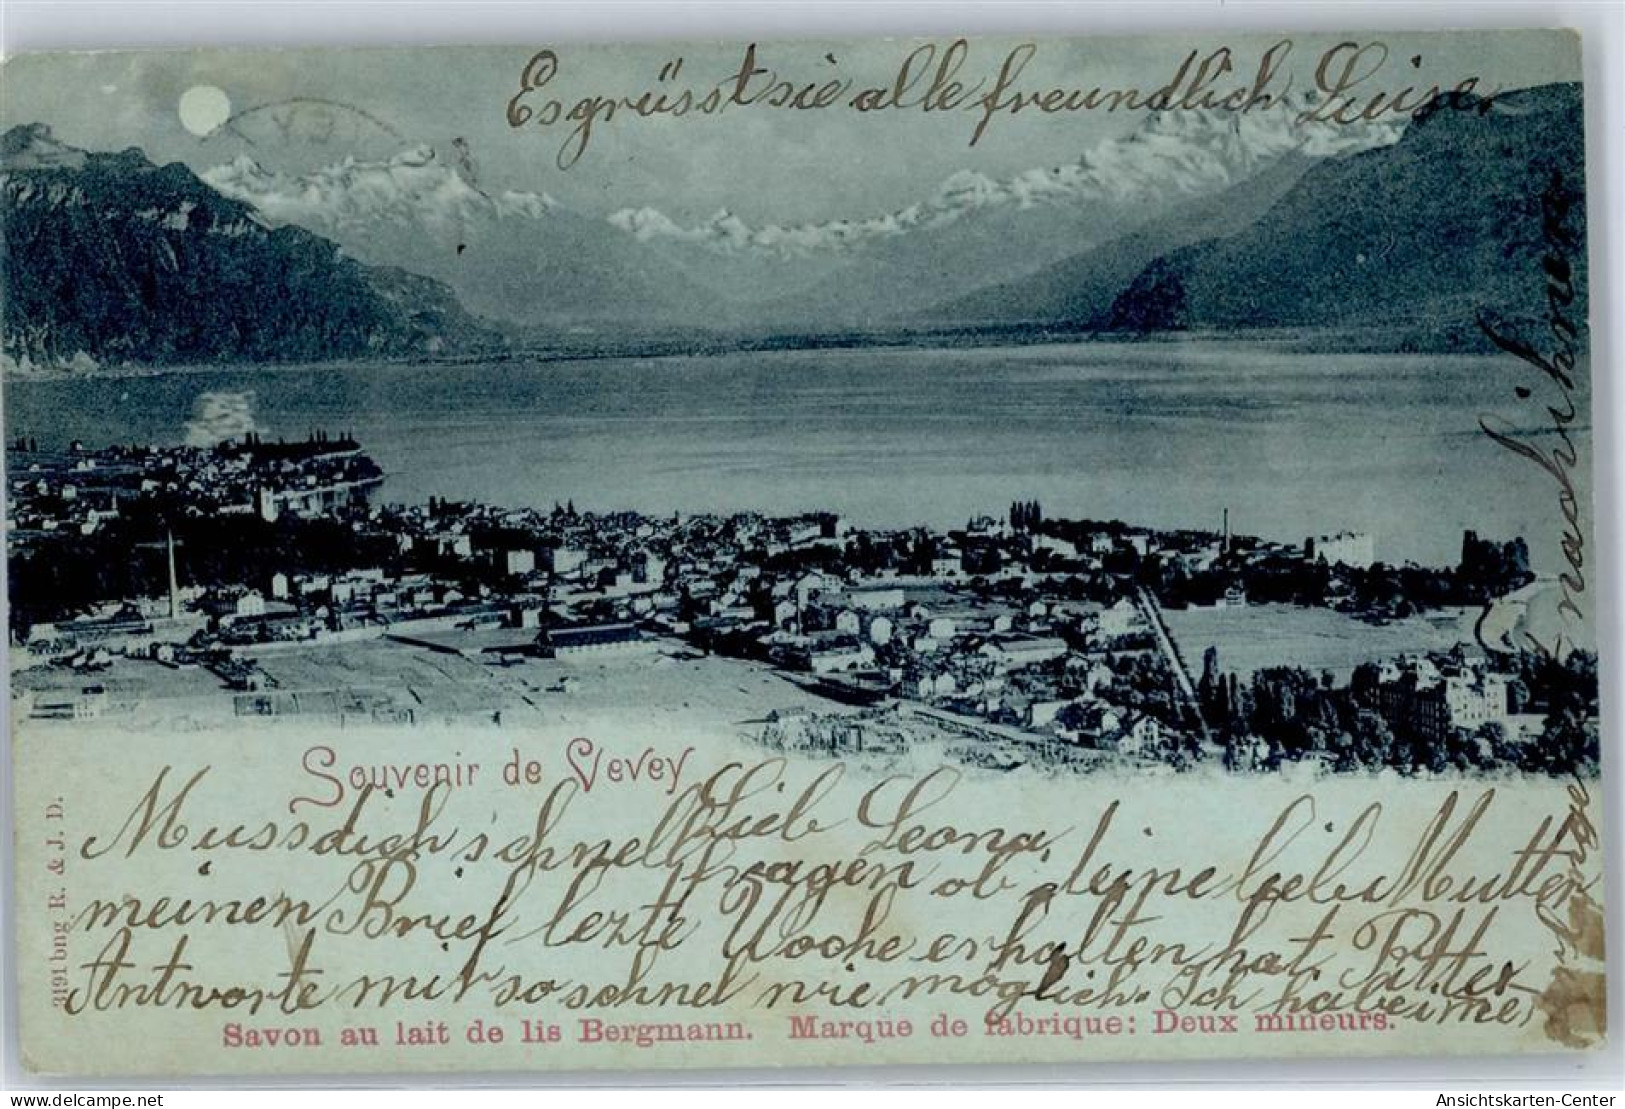 Es grüsst sie alle freundlich Luise.
Souvenir de Vevey
Lieb Leona,
Muss dich schnell fragen ob deine liebe Mutter
meinen Brief lezte Woche erhalten hat. Bitte
Antworte mir so schnel wie möglich. Ich habe imer
nach ihnen
Savon au lait de lis Bergmann. Marque de fabrique: Deux mineurs.
3191 bng R. & J. D.
AK-ANKAUF.DE
Ansichtskarten-Center